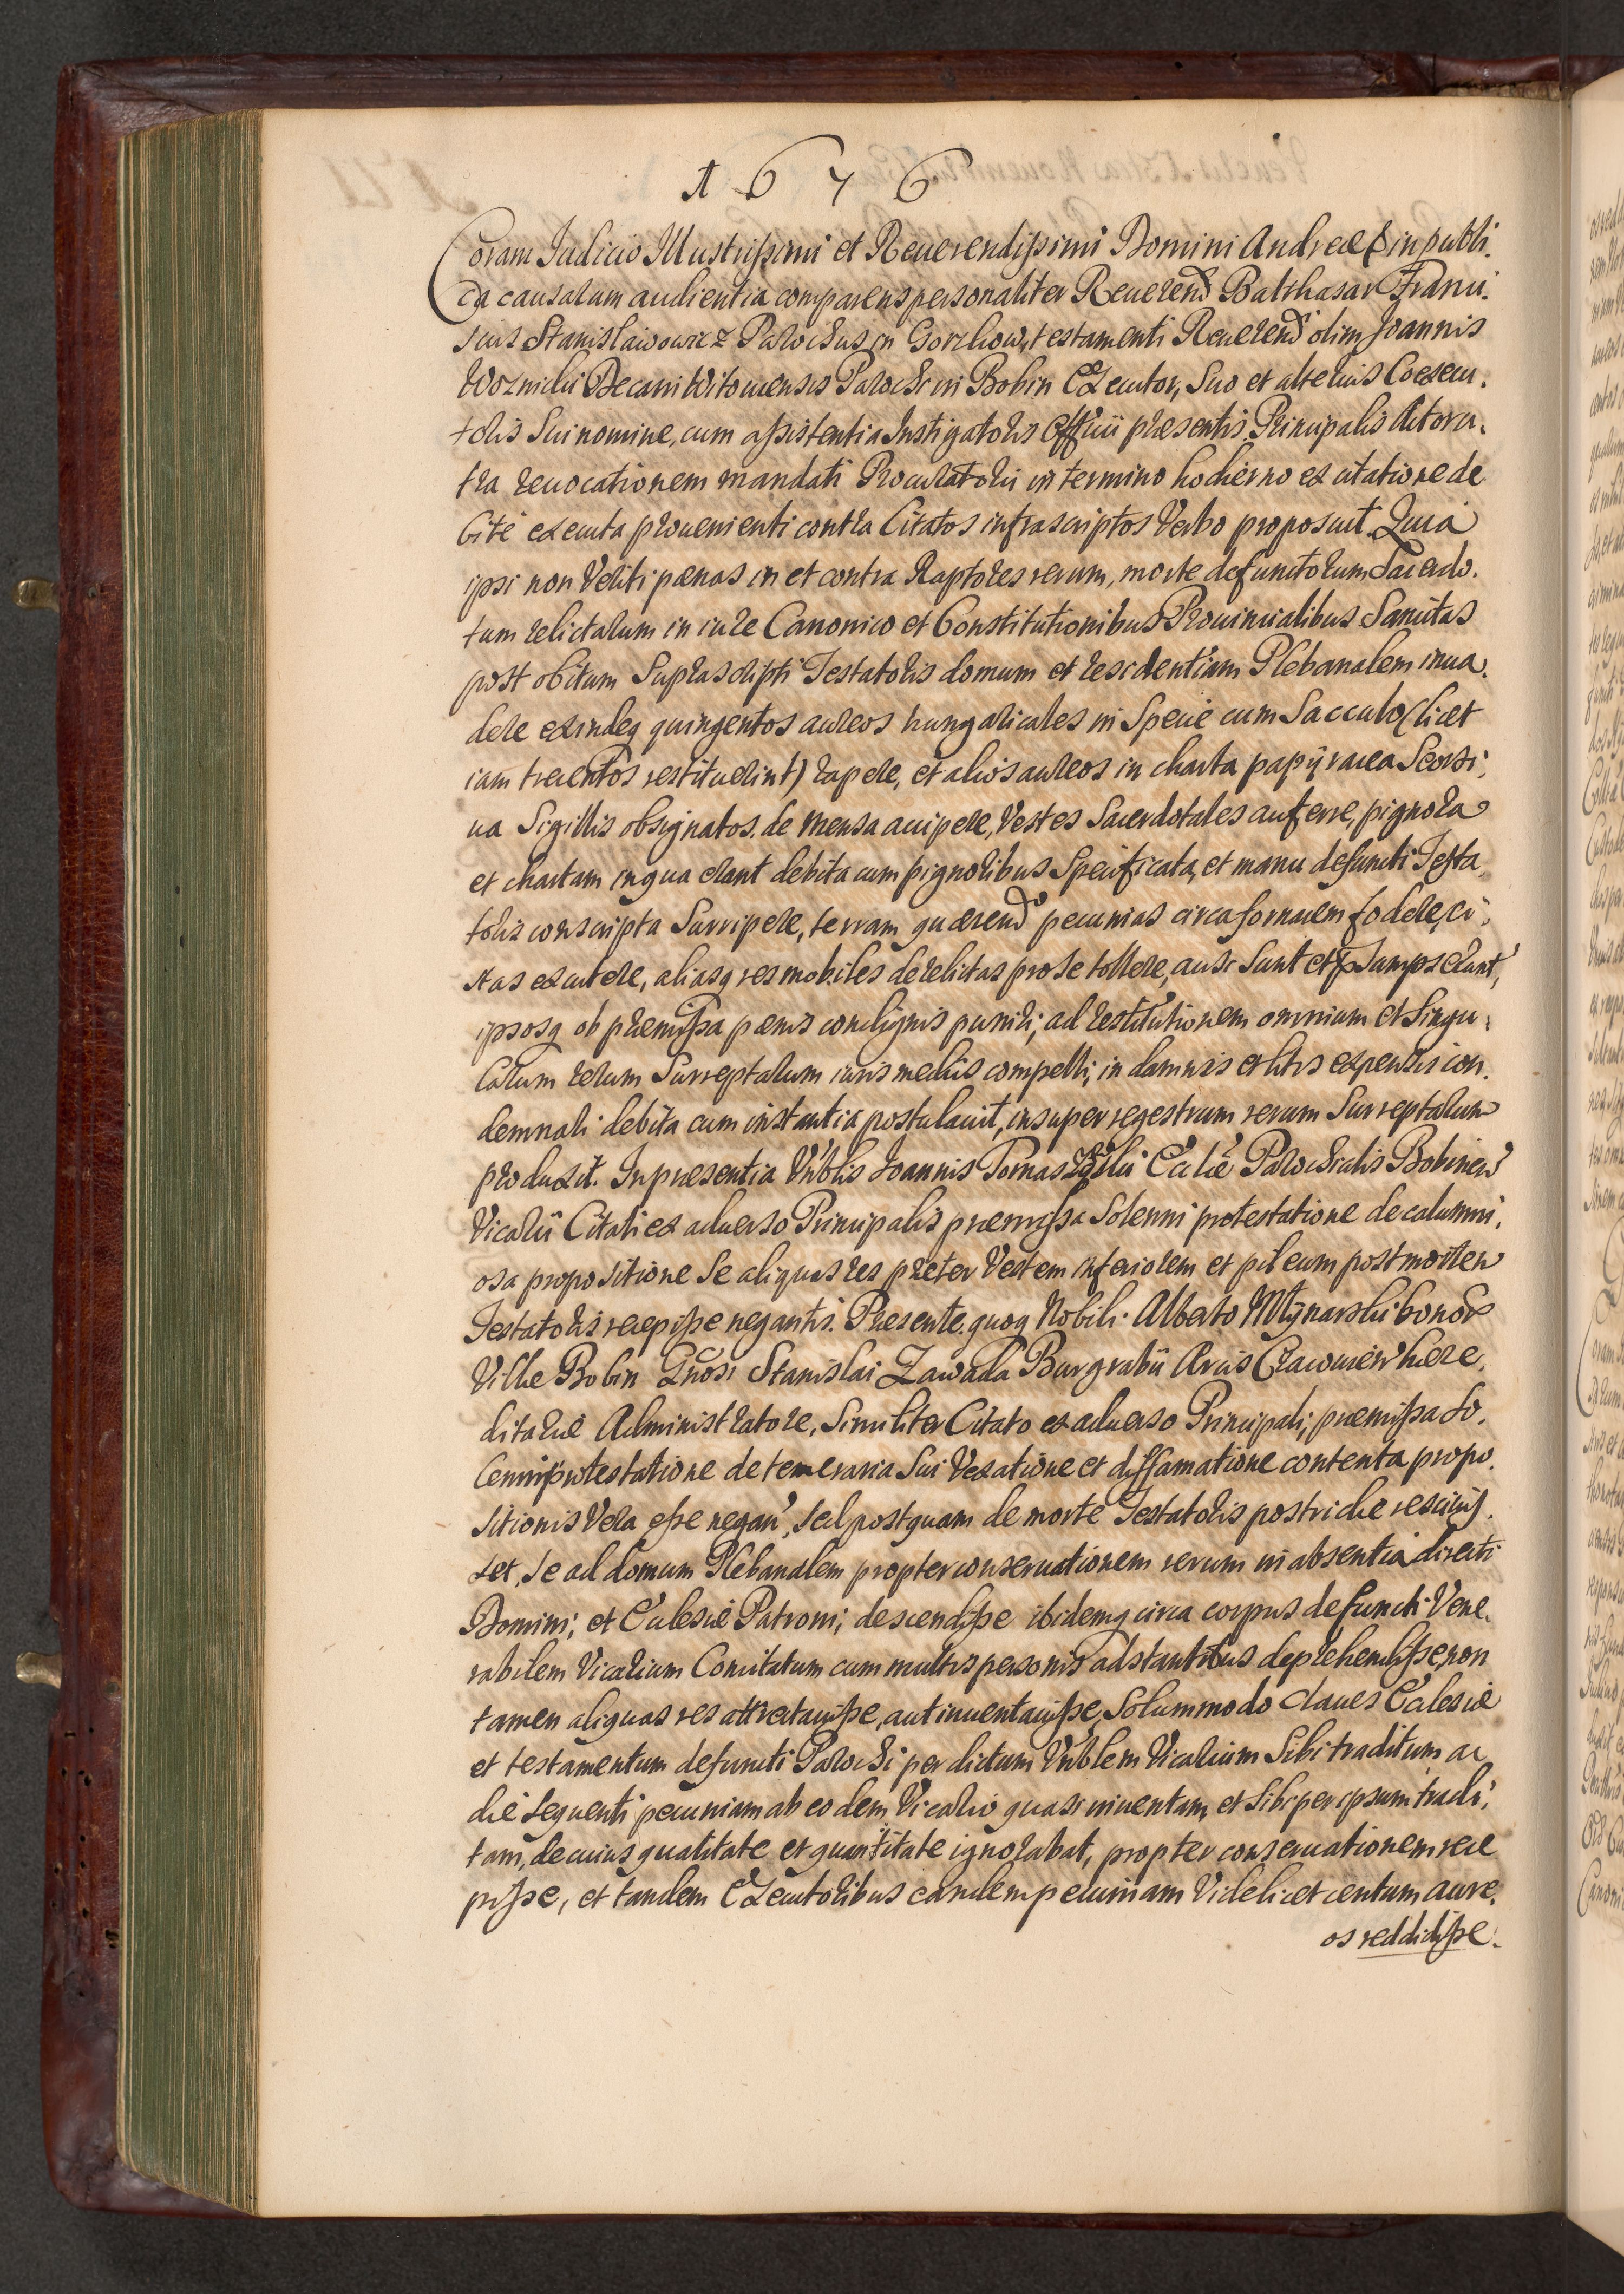 1676
Coram Iudicio Illustrissimi et Reuerendissimi Domini Andreae in publi.
ca causarum audientia comparens personaliter Reuerend Balthasar Franci.
scus Stanislawowicz Parochus in Gorzkow, testamenti Reuerend olim Joannis
Woznicki Decani Witouiensis Parochi in Bobin Executor, Suo et alterius Coexecu.
toris Sui nomine, cum assistentia Instigatoris Officii praesentis Principalis Citra
tra reuocationem mandati Procuratorii in termino hodierno ex citatione de
bite executa proueniente contra Citatos infrascriptos Verbo proposuit. Quia
ipsi non Veriti paenas in et contra Raptores rerum, morte defunctorum Sacerdo.
tum relictarum in iure Canonico et Constitutionibus Prouincialibus Sancitas
post obitum Suprascripti Testatoris domum et residentiam Plebanalem inua.
dere exindeq quingentos aureos hungaricales in Specie cum Sacculo (licet
iam trecentos restituerint) rapere, et alios aureos in charta papyracea Seorsi,
ua Sigillis obsignatos. de mensa accipere, Vestes Sacerdotales auferre, pignora
et chartam in qua erant debita cum pignoribus Specificata, et manu defuncti Testa
toris conscripta Surripere, terram quaerend pecunias circa fornacem fodere, ci,
stas excutere, aliasq res mobiles derelictas pro se tollere, ausi Sunt et praesumpserunt,
ipsosq ob praemissa paenis condignis puniri; ad restitutionem omnium et Singu,
larum rerum Surreptarum iuris mediis compelli; in damnis et litis expensis con.
demnari debita cum instantia postulauit, insuper regestrum rerum Surreptarum
produxit. In praesentia Vnblis Joannis Tomaszewski Ecclie Parochialis Bobinen
Vicarii Citati ex aduerso Principalis praemissa Solenni protestatione de calumni,
osa propositione Se aliquas res praeter Vestem inferiorem et pileum post mortem
Testatoris recepisse negantis. Presente quoq Nobili Alberto Mlynarski bonor
Ville Bobin Gnosi Stanislai Zawada Burgrabii Arcis Cracouien haere,
ditarie Administratore, Similiter Citato ex aduerso Principali; praemissa So.
lenni protestatione de temeraria Sui Vexatione et diffamatione contenta propo.
sitionis Vera esse negan, Sed postquam de morte Testatoris postridie resciuis.
set, Se ad domum Plebanalem propter conseruationem rerum in absentia directi
Domini; et Eclesiae Patroni; descendisse ibidemq circa corpus defuncti Vene.
rabilem Vicarium Comitatum cum multis personis adstantibus deprehendisse, non
tamen aliquas res attrectauisse, aut inuentauisse, Solummodo claues Eclesiae
et testamentum defuncti Parochi per dictum Vnblem Vicarium Sibi traditum ac
die sequenti pecuniam ab eodem Vicario quasi inuentam, et Sibi per ipsum tradi,
tam, de cuius qualitate et quantitate ignorabat, propter conseruationem rece
pisse, et tandem Executoribus eandem pecuniam Videlicet centum aure.
os reddidisse.